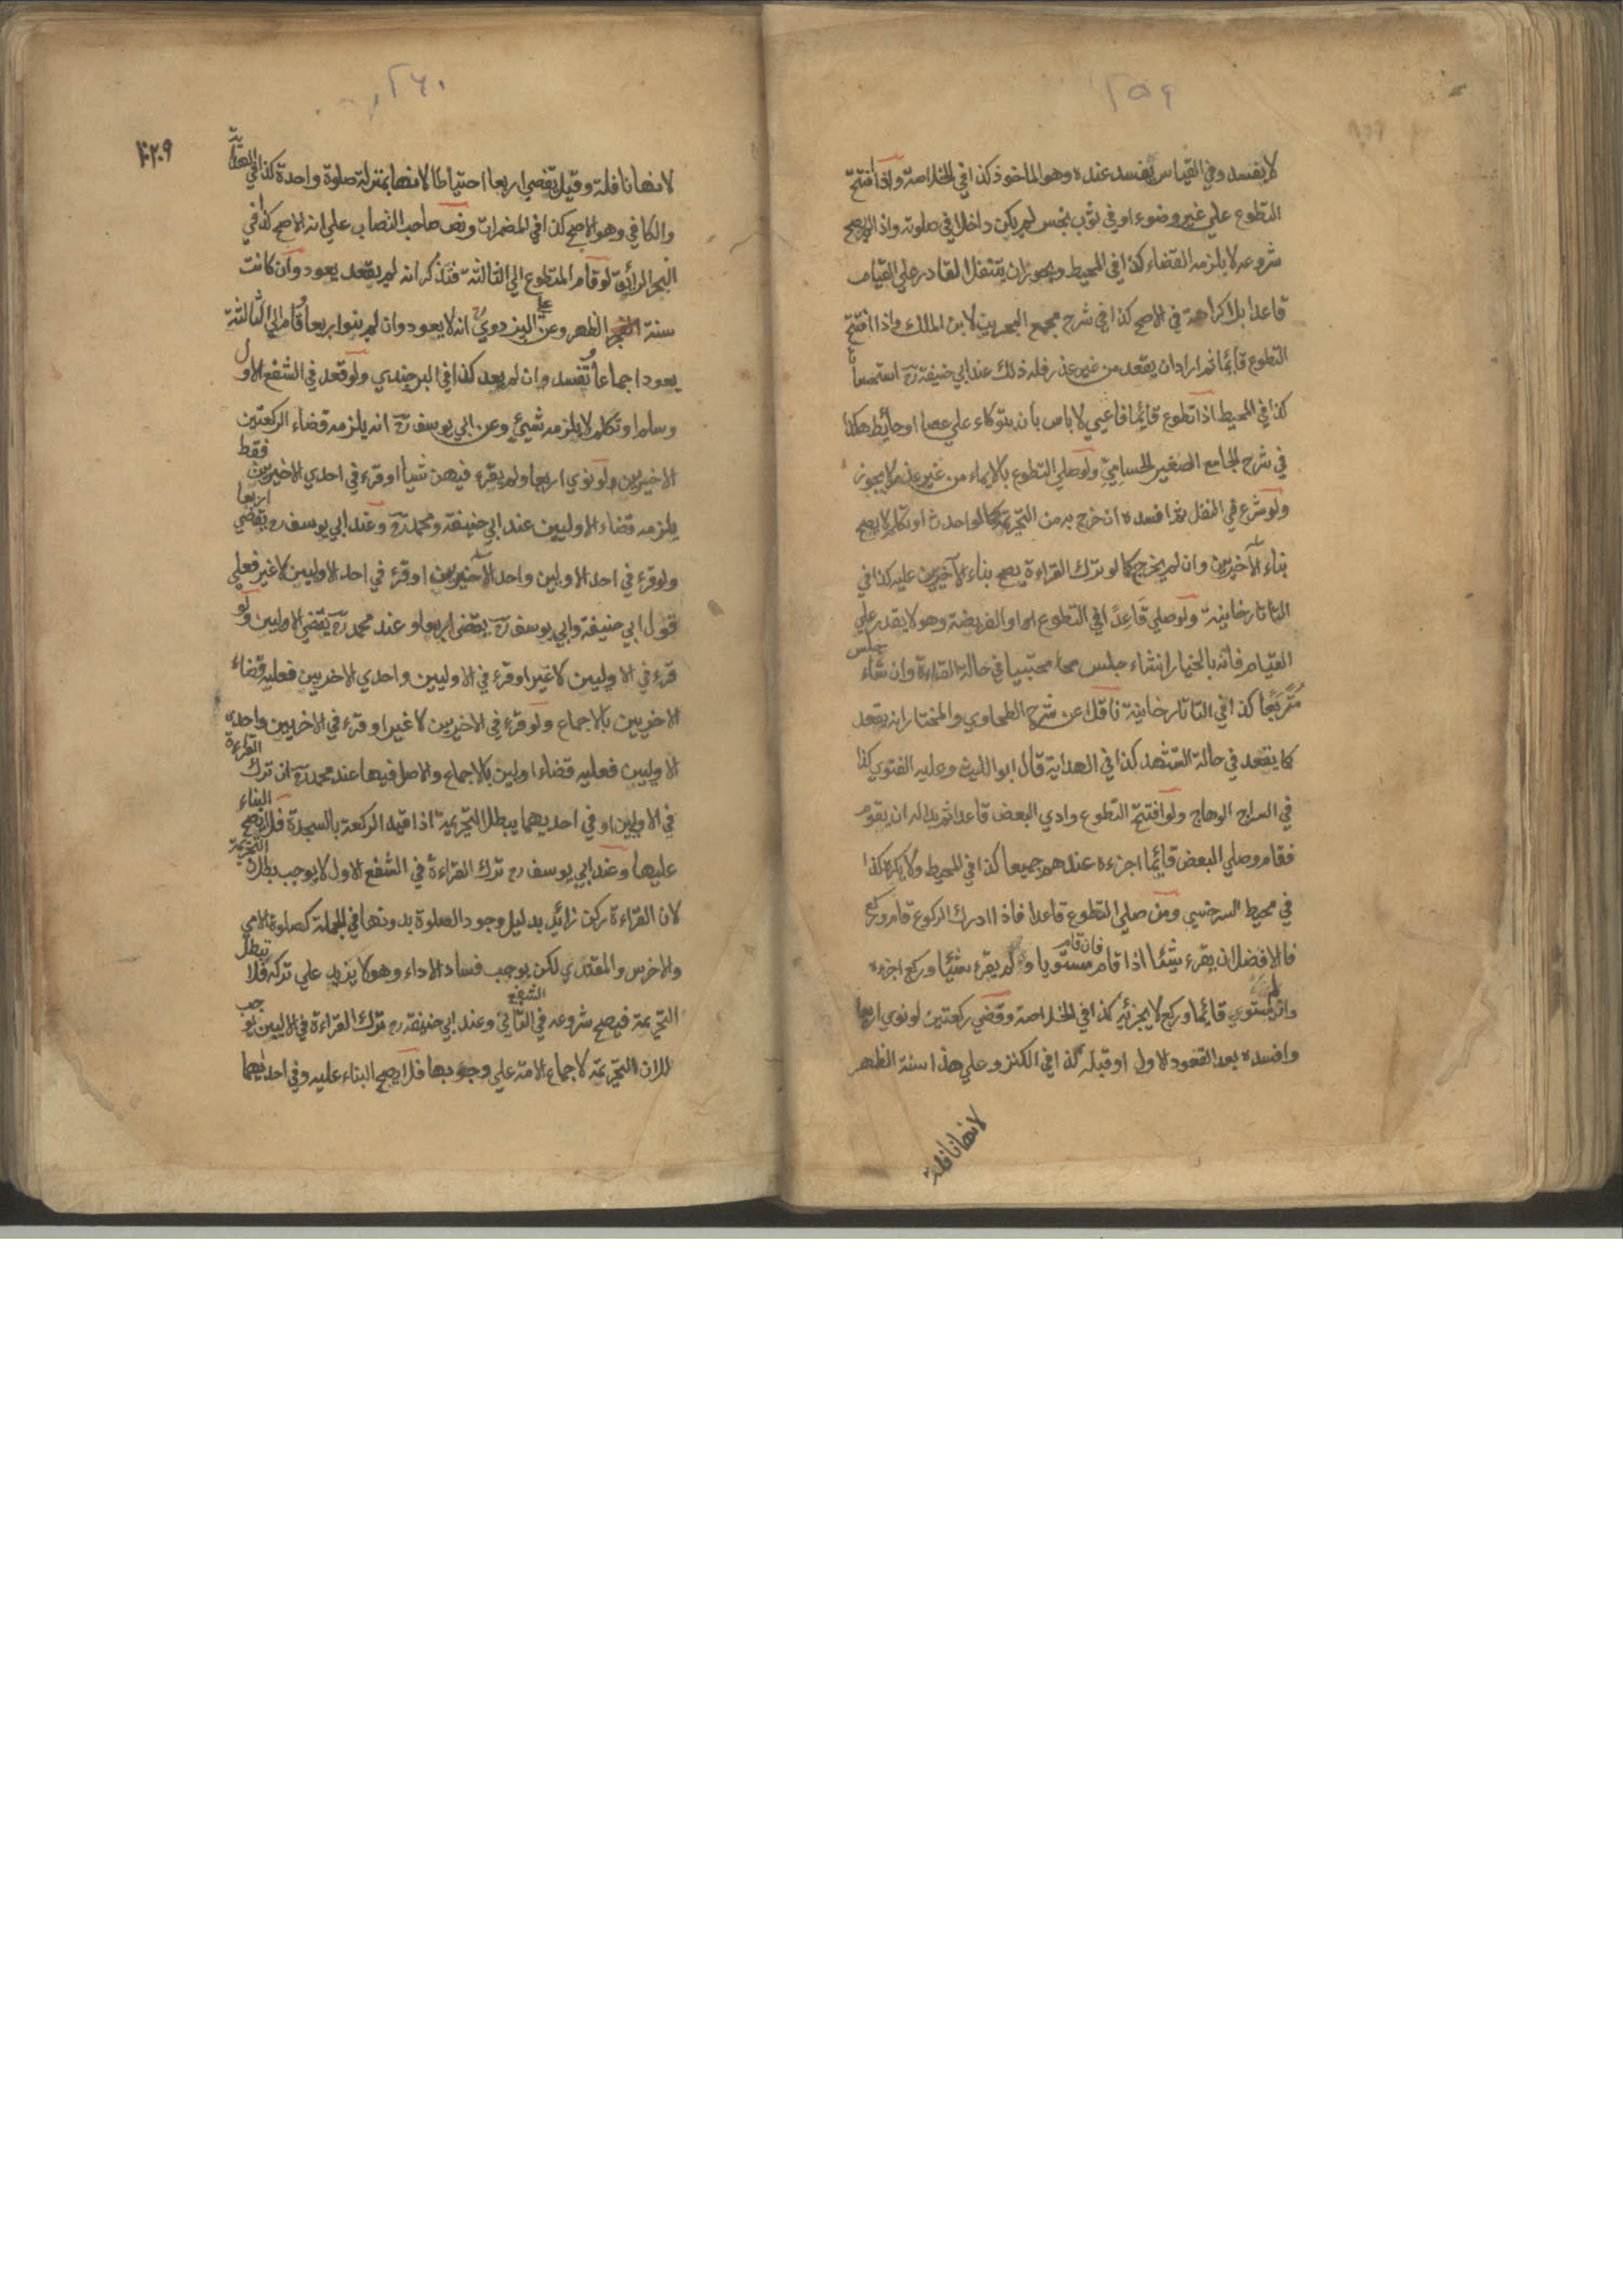 ٢٥٩
لا يفسد وفي القياس يفسد عنده وهو الماخوذ كذا في الخلاصة واذا افتتح
التطوع علي غير وضوء او في ثوب نجس لم يكن داخلا في صلوته واذا لم يصح
شروعه لا يلزمه القضاء كذا في المحيط ويجوز ان يتنفل القادر علي القيام
قاعدا بلا كراهة في الاصح كذا في شرح مجمع البحرين لابن الملك واذا افتتح
التطوع قائما ثم اراد ان يقعد من غير عذر فله ذلك عند ابي حنيفة رح استحسانا
كذا في المحيط اذا تطوع قائما فاعيي لا باس بان يتوكاء علي عصا او حايط هكذا
في شرح الجامع الصغير الحسامي ولو صلي التطوع بالايماء من غير عذر لا يجوز
ولو شرع في النفل ثم افسده ان خرج به من التحريمة كما لو احدث او تكلم لا يصح
بناء الآخيرين وان لم يخرج كما لو ترك القراءة يصح بناء الآخيرين عليه كذا في
التاتارخانية ولو صلي قاعدا في التطوع او الفريضة وهو لا يقدر علي
القيام فانه بالخيار ان شاء جلس محتبيا في حالة القراءة وان شاء جلس
متربعا كذا في التاتارخانية ناقلا عن شرح الطحاوي والمختار انه يقعد
كما يقعد في حالة التشهد كذا في الهداية قال ابو الليث وعليه الفتوي كذا
في السراج الوهاج ولو افتتح التطوع وادي البعض قاعدا ثم بدا له ان يقوم
فقام وصلي البعض قائما اجزءه عندهم جميعا كذا في المحيط ولا يكره كذا
في محيط السرخسي ومن صلي التطوع قاعدا فاذا ادرك الركوع قام وركع
فالافضل ان يقرء شيئا اذا قام فان قام مستويا ولم يقرء شيئا وركع اجزءه
وان لم يستوي قائما وركع لا يجزئه كذا في الخلاصة وقضي ركعتين لو نوي اربعا
وافسده بعد القعود الاول او قبله كذا في الكنز وعلي هذا سنة الظهر
لانها نافلة
٢٦٠
٢٠٩
لانها نافلة وقيل يقضي اربعا احتياطا لانها بمنزلة صلوة واحدة كذا في الهداية
والكافي وهو الاصح كذا في المضمرات ونص صاحب النصاب علي انه الاصح كذا في
البحر الرائق لو قام المتطوع الي الثالثة فتذكر انه لم يقعد يعود وان كانت
سنة الظهر وعن البزدوي انه لا يعود وان لم ينو اربعا وقام الي الثالثة
يعود اجماعا وتفسد وان لم يعد كذا في البرجندي ولو قعد في الشفع الاول
وسلم او تكلم لا يلزمه شيئ وعن ابي يوسف رح انه يلزمه قضاء الركعتين
الاخيرين ولو نوي اربعا ولم يقرء فيهن شيأ او قرء في احدي الاخيرين فقط
يلزمه قضاء الاوليين عند ابي حنيفة ومحمد رح وعند ابي يوسف رح يقضي اربعا
ولو قرء في احد الاولين واحد الآخيرين او قرء في احد الاوليين لا غير فعلي
قول ابي حنيفة وابي يوسف رح يقضي اربعا وعند محمد رح يقضي الاوليين ولو
قرء في الاوليين لا غير او قرء في الاوليين واحدي الاخريين فعليه قضاء
الاخريين بالاجماع ولو قرء في الاخيرين لا غير او قرء في الاخريين واحدي
الاوليين فعليه قضاء اولين بالاجماع والاصل فيها عند محمد رح ان ترك القراءة
في الاوليين او في احديهما يبطل التحريمة اذا قيد الركعة بالسجدة فلا يصح البناء
عليها وعند ابي يوسف رح ترك القراءة في الشفع الاول لا يوجب بطلان التحريمة
لان القراءة ركن زائد بدليل وجود الصلوة بدونها في الجملة كصلوة الامي
والاخرس والمقتدي لكن يوجب فساد الاداء وهو لا يزيد علي تركه فلا تبطل
التحريمة فيصح شروعه في الشفع الثاني وعند ابي حنيفة رح ترك القراءة في الاليين يوجب
التحريمة لاجماع الامة علي وجوبها فلا يصح البناء عليه وفي احديهما